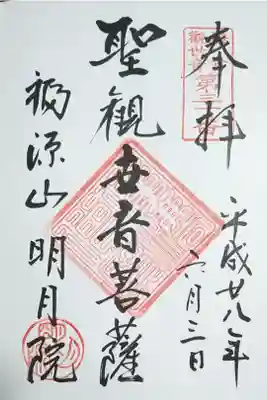 奉拝
平成廿八年
六月三日
聖観世音菩薩
福源山明月院